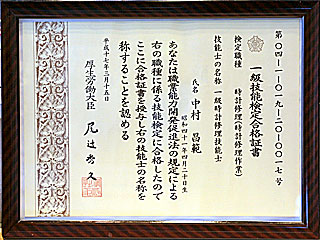 第〇四-一-〇一九-二〇-〇〇一七号
一級技能検定合格証書
検定職種 時計修理(時計修理作業)
技能士の名称 一級時計修理技能士
氏名 中村 昌範
昭和四十一年四月二十日生
あなたは職業能力開発促進法の規定による
右の職種に係る技能検定に合格したので
ここに合格証書を授与し右の技能士の名称を
称することを認める
平成十七年三月十五日
厚生労働大臣 尾辻秀久